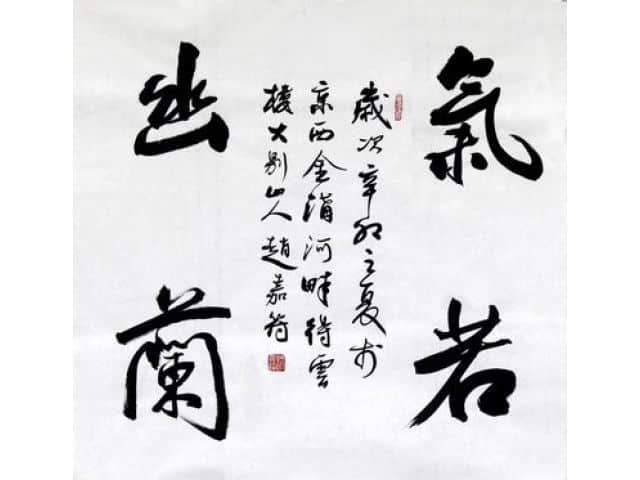 氣若
歲次辛卯之夏於
京西金溝河畔得雲
樓大別山人趙嘉符
幽蘭